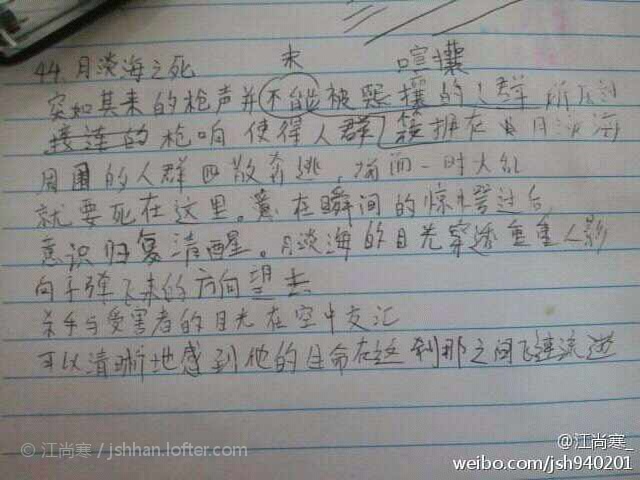 44.月淡海之死 未 喧攘
突如其来的枪声并不能被喧攘的人群所
接连的枪响使得人群 簇拥在 月淡海
周围的人群四散奔逃，场面一时大乱
就要死在这里。 在瞬间的惊愕过后
意识归复清醒。月淡海的目光穿透重重人影
向子弹飞来的方向望去
杀手与受害者的目光在空中交汇
可以清晰地感到他的生命在这刹那之间飞速流逝
© 江尚寒 / jshhan.lofter.com
@江尚寒_
weibo.com/jsh940201